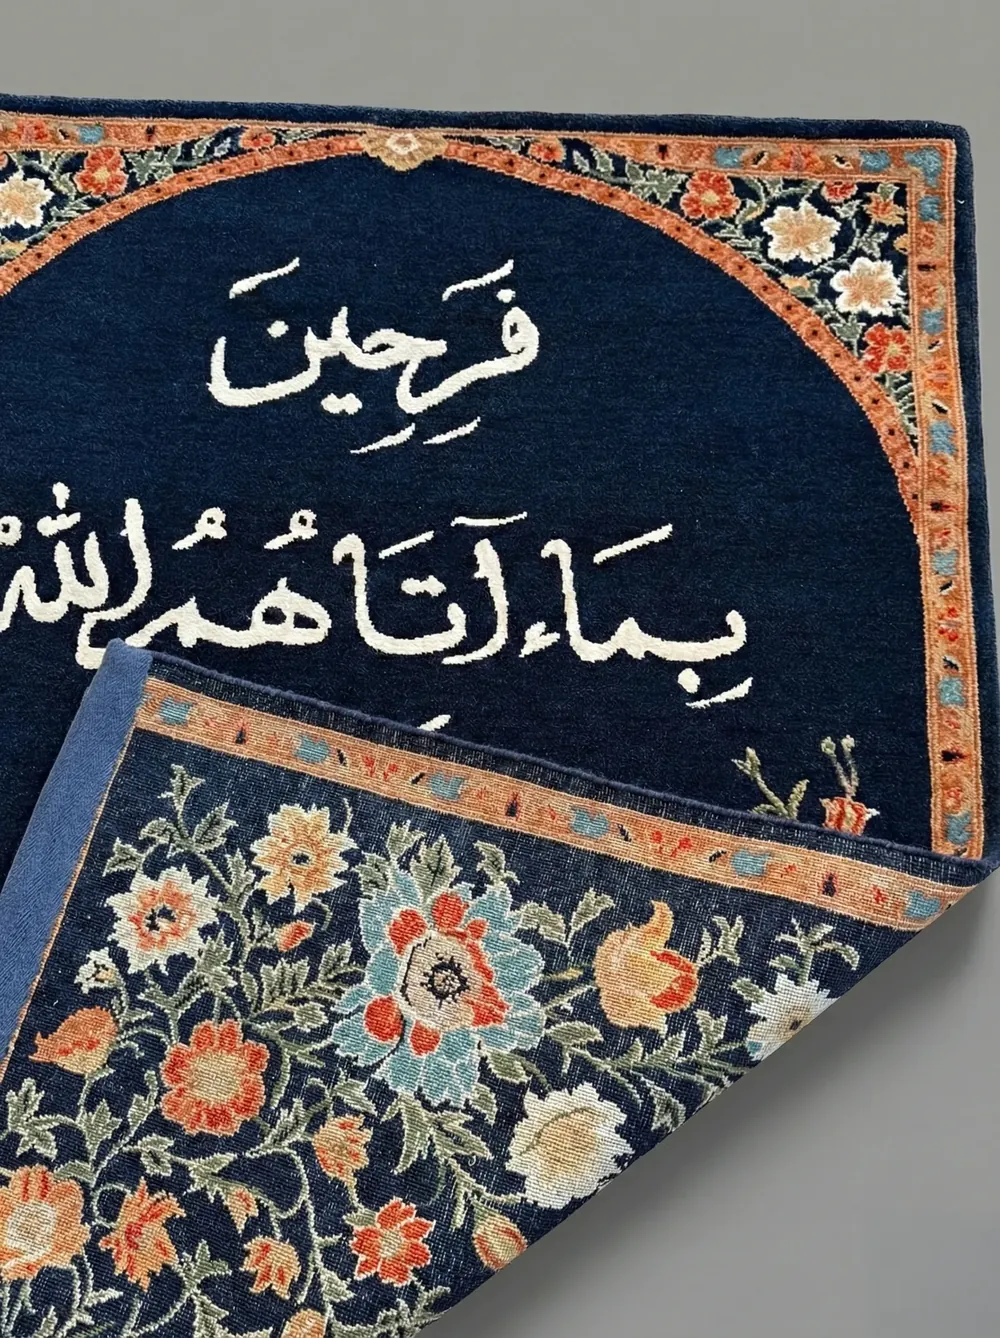 فَرِحِينَ
بِمَاء آتَاهُمُ اللهُ